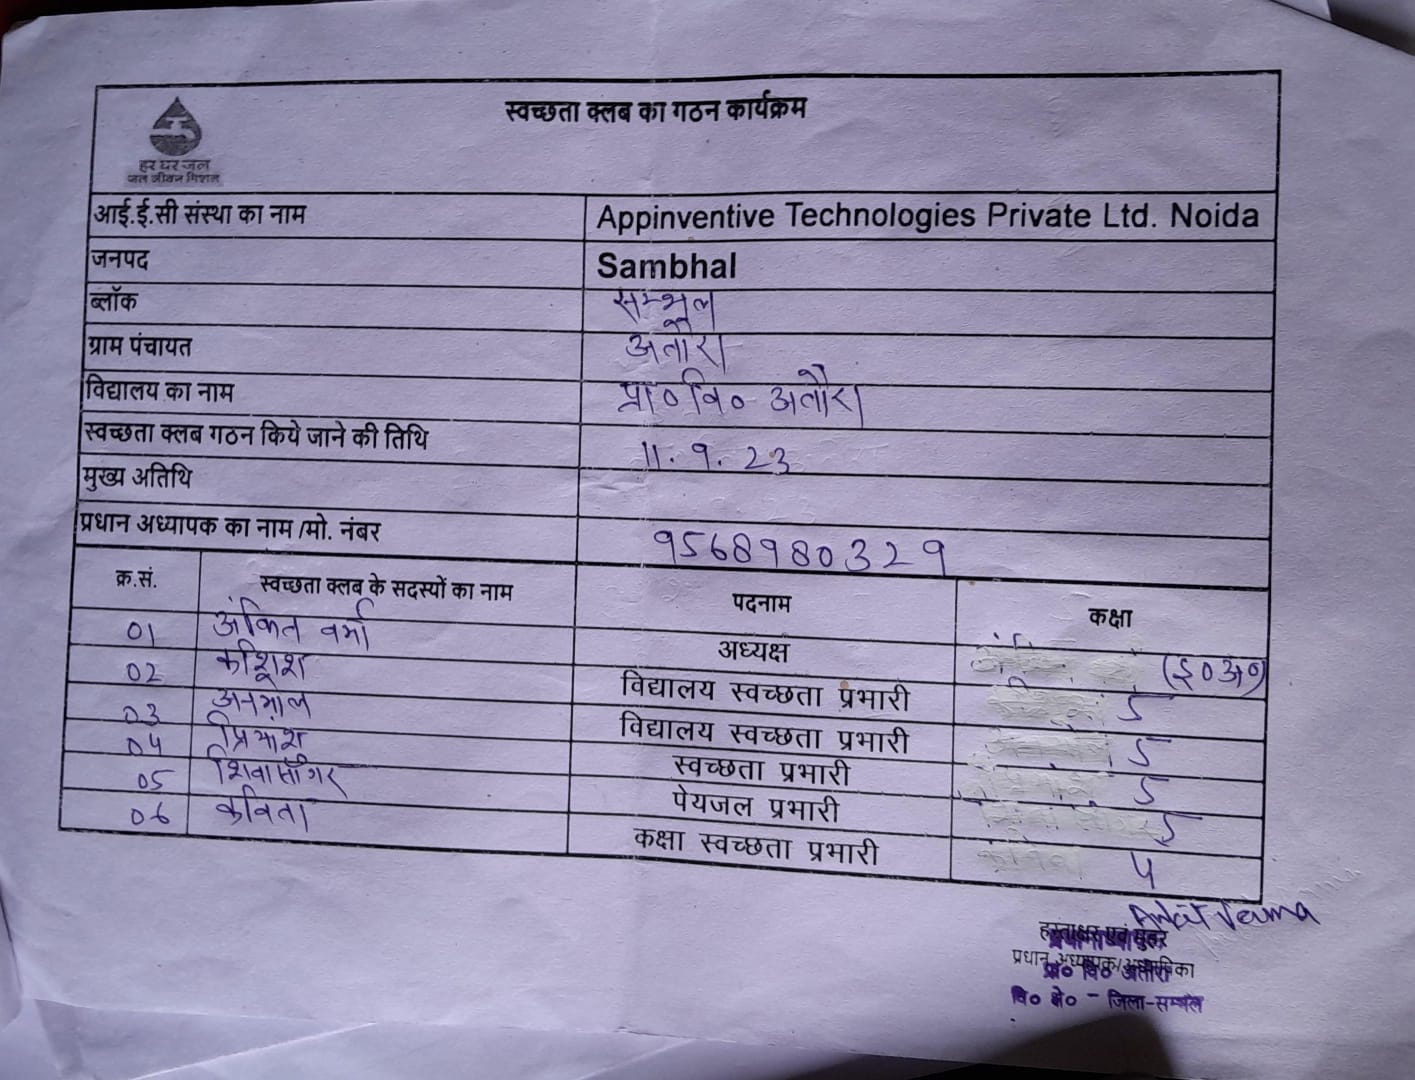 स्वच्छता क्लब का गठन कार्यक्रम
हर घर जल
जल जीवन मिशन
आई.ई.सी संस्था का नाम Appinventive Technologies Private Ltd. Noida
जनपद Sambhal
ब्लॉक सम्भल
ग्राम पंचायत अतौरा
विद्यालय का नाम प्रा० वि० अतौरा
स्वच्छता क्लब गठन किये जाने की तिथि 11.9.23
मुख्य अतिथि
प्रधान अध्यापक का नाम /मो. नंबर 9568980329
क्र.सं. स्वच्छता क्लब के सदस्यों का नाम पदनाम कक्षा
01 अंकित वर्मा अध्यक्ष (इ०अ०)
02 कशिश विद्यालय स्वच्छता प्रभारी 5
03 अनमोल विद्यालय स्वच्छता प्रभारी 5
04 स्वच्छता प्रभारी 5
05 पेयजल प्रभारी 5
06 कविता कक्षा स्वच्छता प्रभारी 4
Ankit Verma
हस्ताक्षर एवं मुहर
प्रधान अध्यापक/अध्यापिका
प्रा० वि० अतौरा
वि० क्षे० - जिला-सम्भल